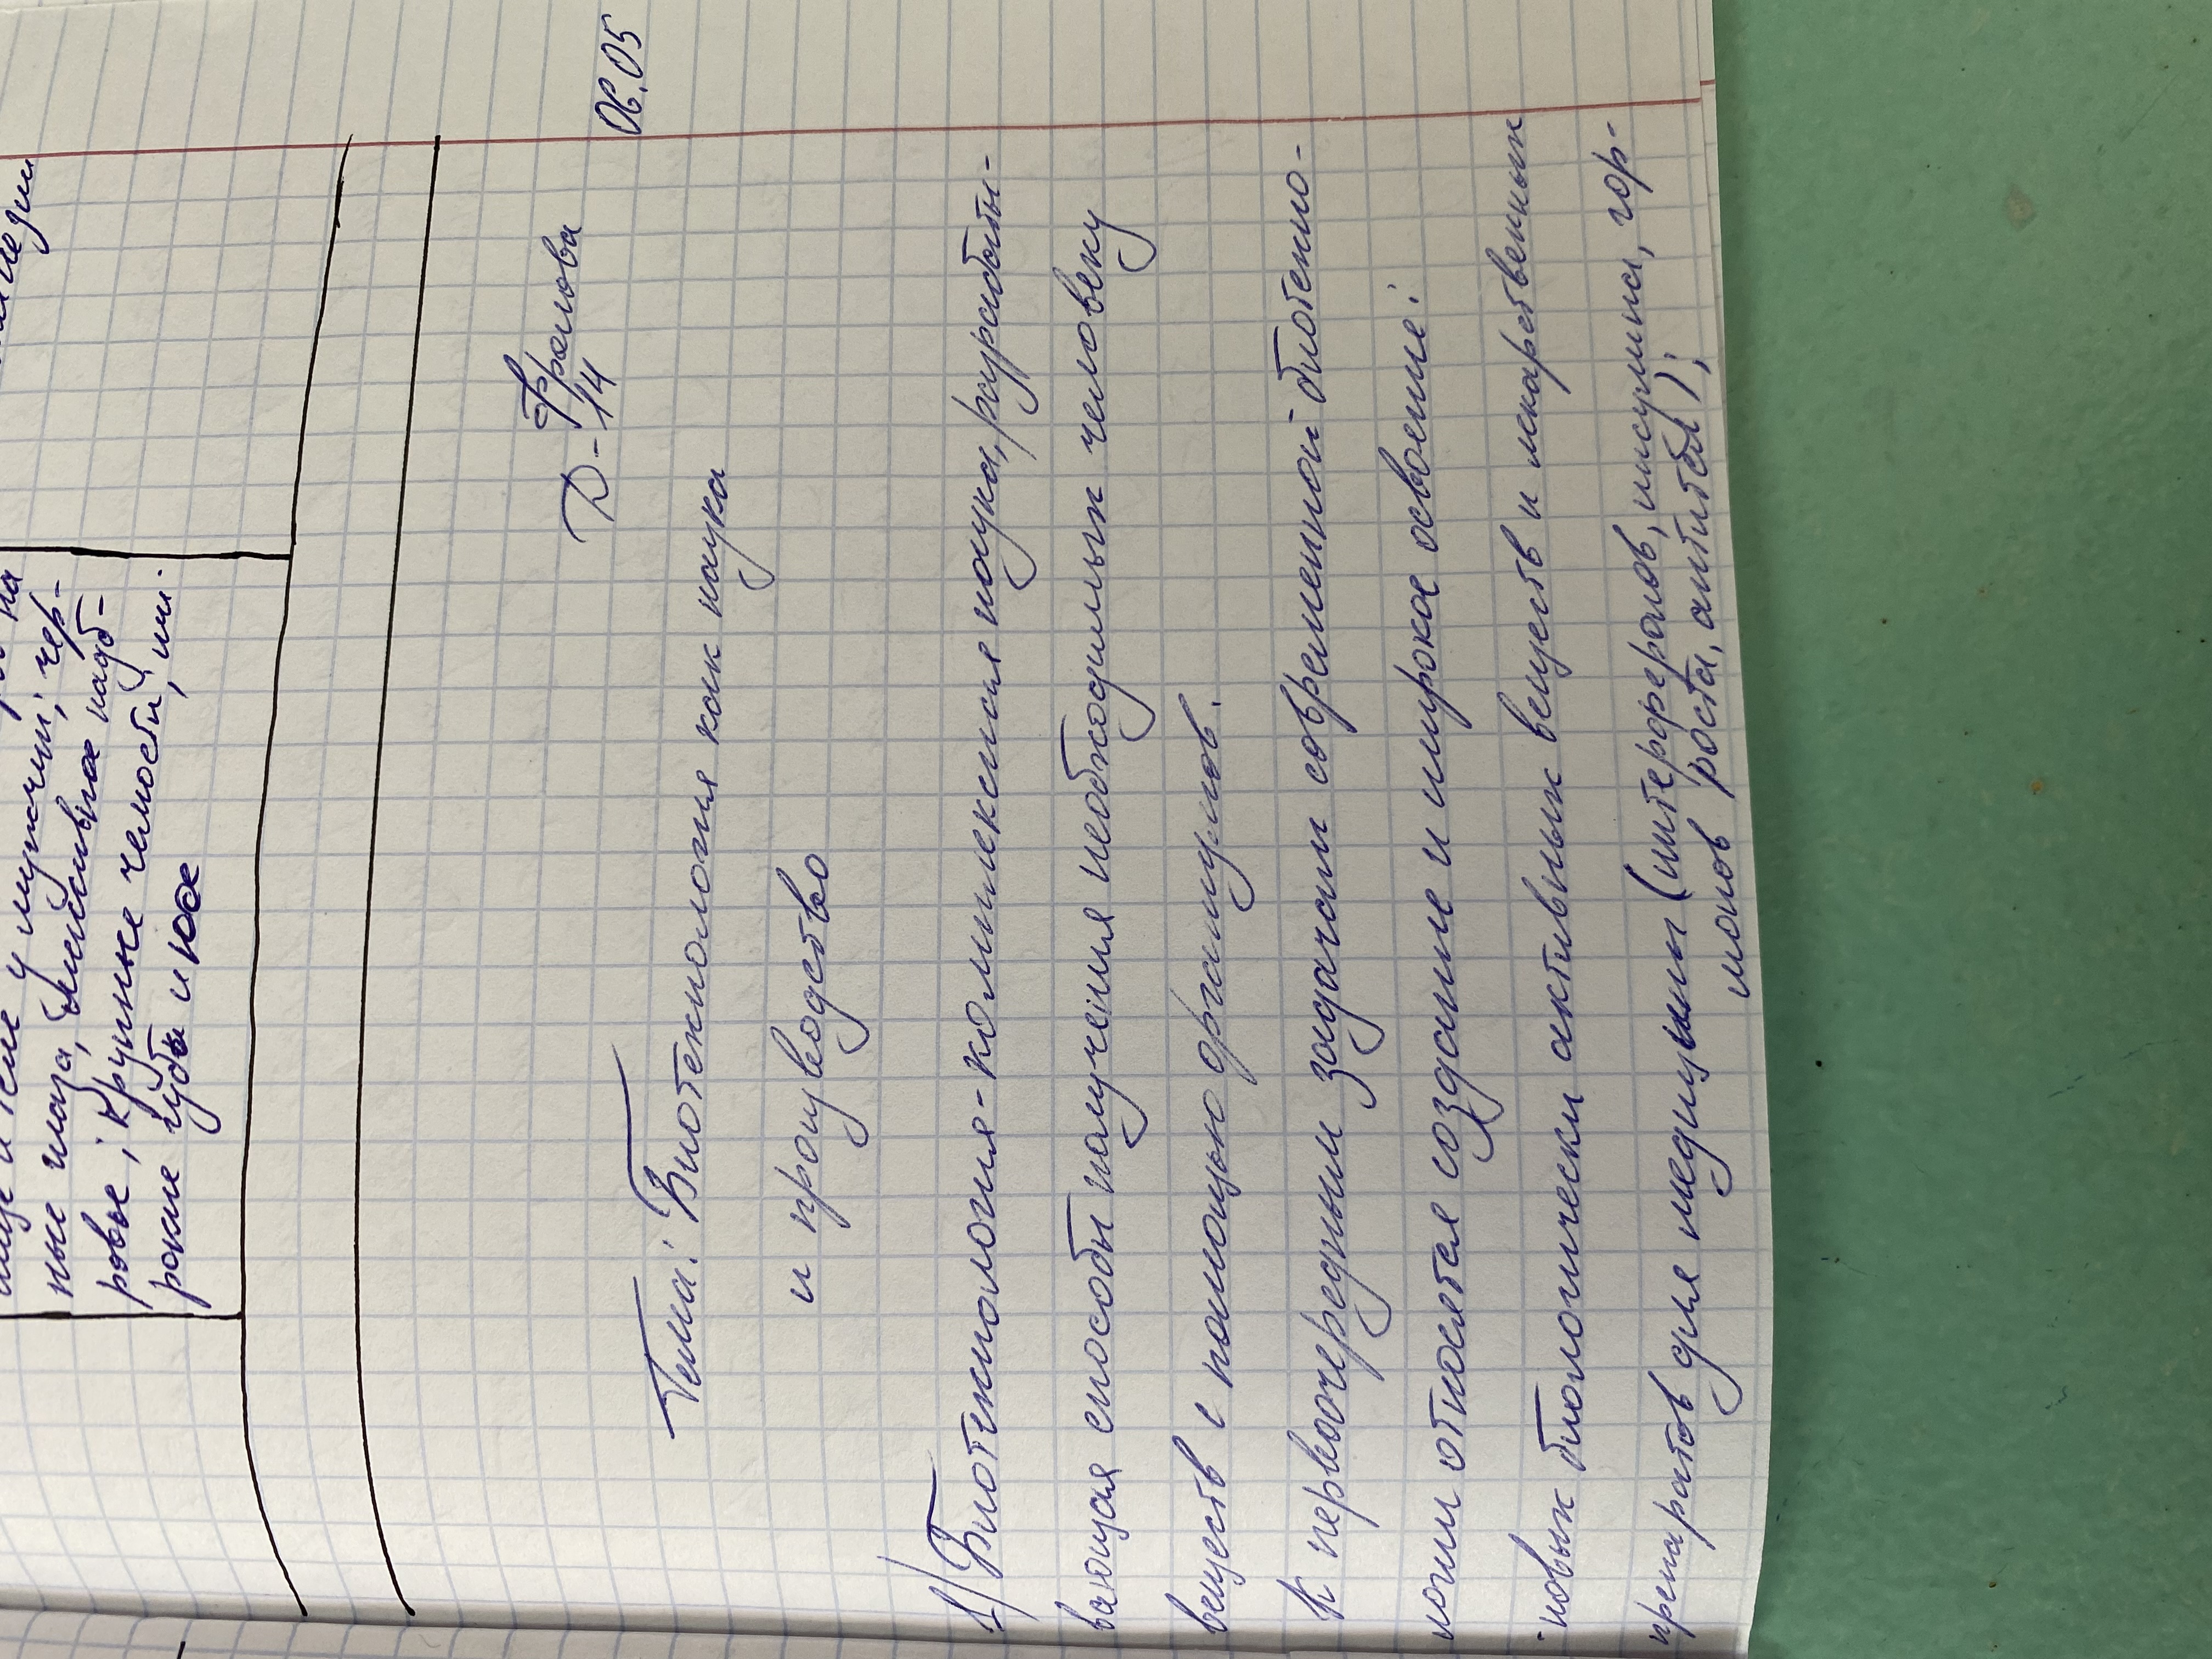 ные глаза,
ровые; крупные челюсти, ши-
рокие губы и нос
Фролова
Д-14
06.05
Тема: Биотехнология как наука
и производство
1) Биотехнология-комплексная наука, разрабаты-
вающая способы получения необходимых человеку
веществ с помощью организмов.
К первоочередным задачам современной биотехно-
логии относятся создание и широкое освоение:
·новых биологически активных веществ и лекарственных
препаратов для медицины (интерферонов, инсулина, гор-
монов роста, антител);